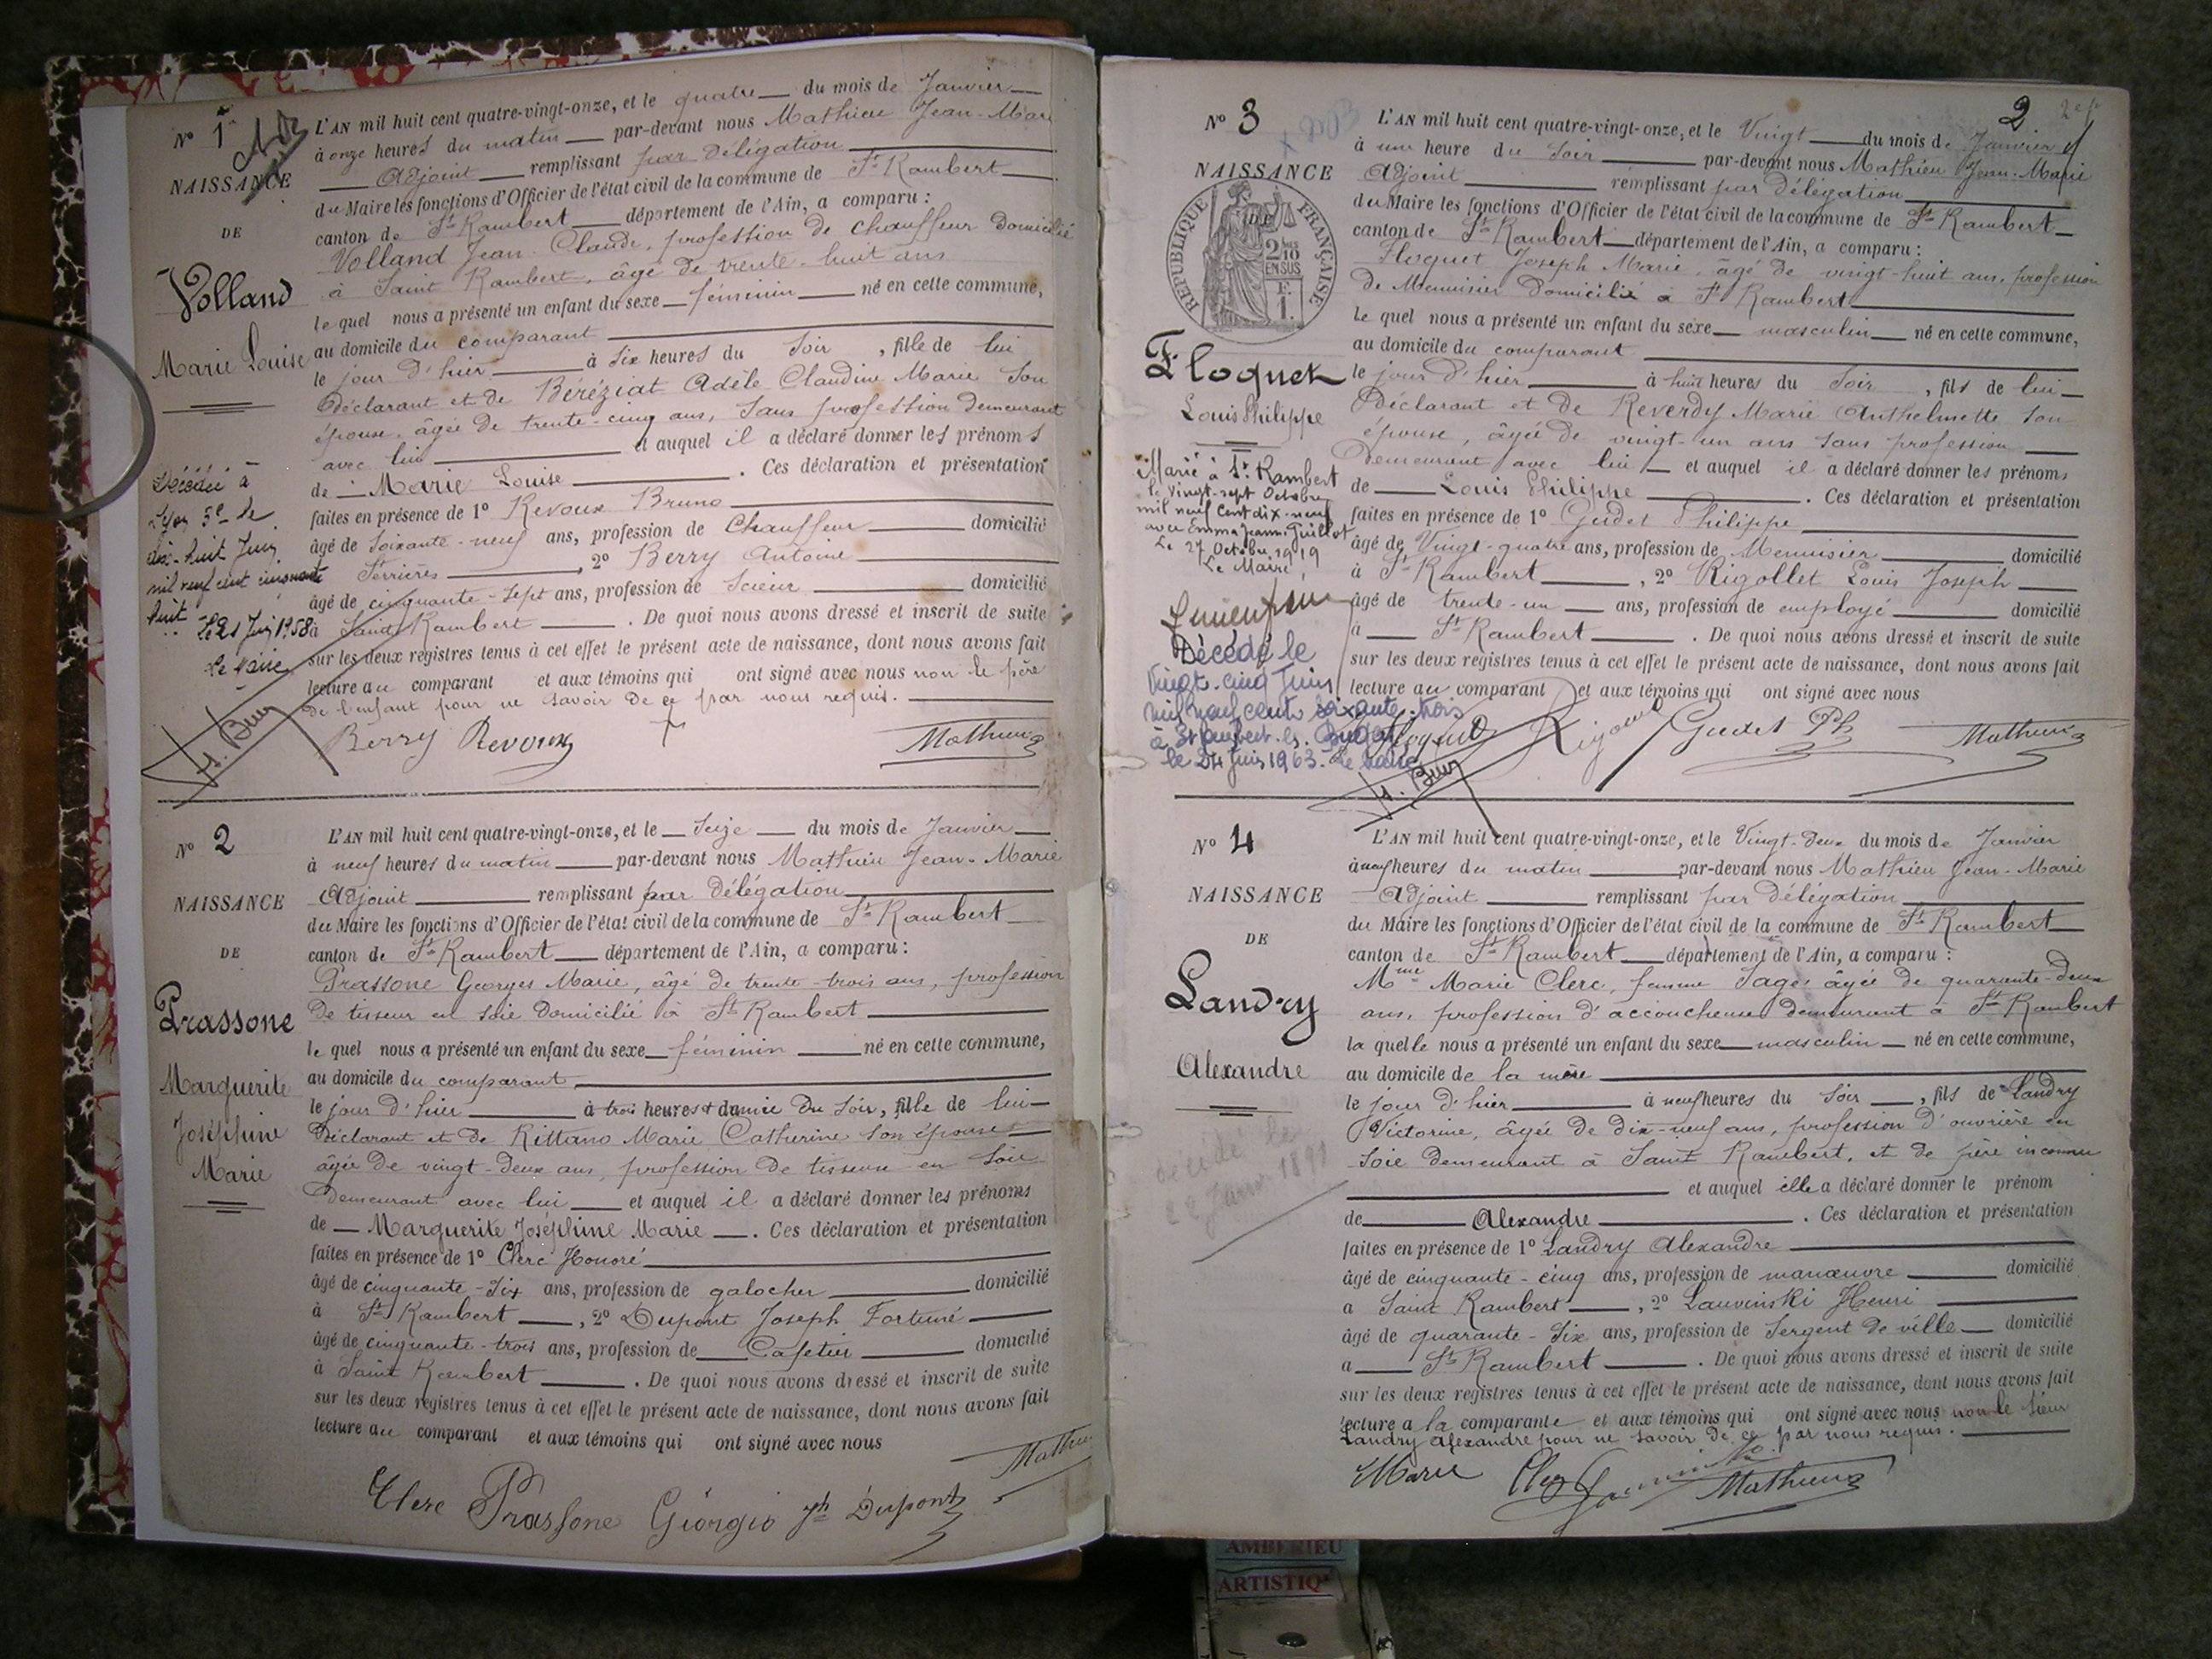 N° 1
NAISSANCE
DE
Volland
Marie Louise
Décédée à
Lyon 3e le
dix-huit Juin
mil neuf cent cinquante
huit
Le 21 Juin 1958
Le Maire
L'AN mil huit cent quatre-vingt-onze, et le quatre du mois de Janvier
à onze heures du matin par-devant nous Mathieu Jean-Marie
Adjoint remplissant par délégation
du Maire les fonctions d'Officier de l'état civil de la commune de St Rambert
canton de St Rambert département de l'Ain, a comparu :
Volland Jean-Claude, profession de chauffeur domicilié
à Saint Rambert, âgé de trente-huit ans
le quel nous a présenté un enfant du sexe féminin né en cette commune,
au domicile du comparant
le jour d'hier à six heures du soir, fille de lui
Déclarant et de Béréziat Adèle Claudine Marie son
épouse, âgée de trente-cinq ans, sans profession demeurant
avec lui et auquel il a déclaré donner les prénoms
de Marie Louise. Ces déclaration et présentation
faites en présence de 1° Revoux Bruno
âgé de soixante-neuf ans, profession de Chauffeur domicilié
Serrières, 2° Berry Antoine
âgé de cinquante-sept ans, profession de Scieur domicilié
à Saint Rambert. De quoi nous avons dressé et inscrit de suite
sur les deux registres tenus à cet effet le présent acte de naissance, dont nous avons fait
lecture au comparant et aux témoins qui ont signé avec nous non le père
de l'enfant pour ne savoir de ce par nous requis.
Berry Revoux Mathieu
N° 2
NAISSANCE
DE
Prassone
Marguerite
Joséphine
Marie
L'AN mil huit cent quatre-vingt-onze, et le Seize du mois de Janvier
à neuf heures du matin par-devant nous Mathieu Jean-Marie
Adjoint remplissant par délégation
du Maire les fonctions d'Officier de l'état civil de la commune de St Rambert
canton de St Rambert département de l'Ain, a comparu :
Prassone Georges Marie, âgé de trente-trois ans, profession
de tisseur en soie domicilié à St Rambert
le quel nous a présenté un enfant du sexe féminin né en cette commune,
au domicile du comparant
le jour d'hier à trois heures & demie du soir, fille de lui
Déclarant et de Rittano Marie Catherine son épouse
âgée de vingt-deux ans, profession de tisseuse en soie
Demeurant avec lui et auquel il a déclaré donner les prénoms
de Marguerite Joséphine Marie. Ces déclaration et présentation
faites en présence de 1° Clerc Honoré
âgé de cinquante-six ans, profession de galocher domicilié
à St Rambert, 2° Dupont Joseph Fortuné
âgé de cinquante-trois ans, profession de Cafetier domicilié
à Saint Rambert. De quoi nous avons dressé et inscrit de suite
sur les deux registres tenus à cet effet le présent acte de naissance, dont nous avons fait
lecture au comparant et aux témoins qui ont signé avec nous
Clerc Prassone Giorgio Jh Dupont Mathieu
2
N° 3
NAISSANCE
RÉPUBLIQUE FRANÇAISE
2/10 EN SUS
F. 1.
Floquet
Louis Philippe
Marié à St Rambert
le Vingt-sept Octobre
mil neuf cent dix-neuf
avec Emma Jeanne Guillot
Le 27 Octobre 1919
Le Maire,
Décédé le
Vingt-cinq Juin
mil neuf cent soixante-trois
à St Rambert-
le 24 Juin 1963. Le Maire
L'AN mil huit cent quatre-vingt-onze, et le Vingt du mois de Janvier
à une heure du soir par-devant nous Mathieu Jean-Marie
Adjoint remplissant par délégation
du Maire les fonctions d'Officier de l'état civil de la commune de St Rambert
canton de St Rambert département de l'Ain, a comparu :
Floquet Joseph Marie, âgé de vingt-huit ans, profession
de Menuisier domicilié à St Rambert
le quel nous a présenté un enfant du sexe masculin né en cette commune,
au domicile du comparant
le jour d'hier à huit heures du soir, fils de lui
Déclarant et de Reverdy Marie Anthelmette son
épouse, âgée de vingt-un ans sans profession
Demeurant avec lui et auquel il a déclaré donner les prénoms
de Louis Philippe. Ces déclaration et présentation
faites en présence de 1° Gudet Philippe
âgé de Vingt-quatre ans, profession de Menuisier domicilié
à St Rambert, 2° Rigollet Louis Joseph
âgé de trente-un ans, profession de employé domicilié
à St Rambert. De quoi nous avons dressé et inscrit de suite
sur les deux registres tenus à cet effet le présent acte de naissance, dont nous avons fait
lecture au comparant et aux témoins qui ont signé avec nous
Gudet Ph Mathieu
N° 4
NAISSANCE
DE
Landry
Alexandre
décédé le
1891
L'AN mil huit cent quatre-vingt-onze, et le Vingt-deux du mois de Janvier
à neuf heures du matin par-devant nous Mathieu Jean-Marie
Adjoint remplissant par délégation
du Maire les fonctions d'Officier de l'état civil de la commune de St Rambert
canton de St Rambert département de l'Ain, a comparu :
Mme Marie Clerc, femme Sage, âgée de quarante-deux
ans, profession d'accoucheuse demeurant à St Rambert
la quelle nous a présenté un enfant du sexe masculin né en cette commune,
au domicile de la mère
le jour d'hier à neuf heures du soir, fils de Landry
Victorine, âgée de dix-neuf ans, profession d'ouvrière en
soie demeurant à Saint Rambert, et de père inconnu
et auquel elle a déclaré donner le prénom
de Alexandre. Ces déclaration et présentation
faites en présence de 1° Landry Alexandre
âgé de cinquante-cinq ans, profession de manœuvre domicilié
a Saint Rambert, 2° Lauvinski Henri
âgé de quarante-six ans, profession de Sergent de ville domicilié
a St Rambert. De quoi nous avons dressé et inscrit de suite
sur les deux registres tenus à cet effet le présent acte de naissance, dont nous avons fait
lecture a la comparante et aux témoins qui ont signé avec nous non le sieur
Landry Alexandre pour ne savoir de ce par nous requis.
Marie Clerc Mathieu
AMBERIEU
ARTISTIQ